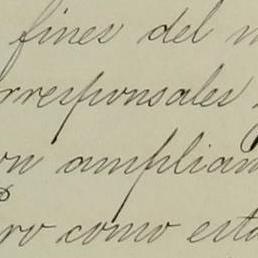 fines del
rresponsales
on ampliam
ro como esta